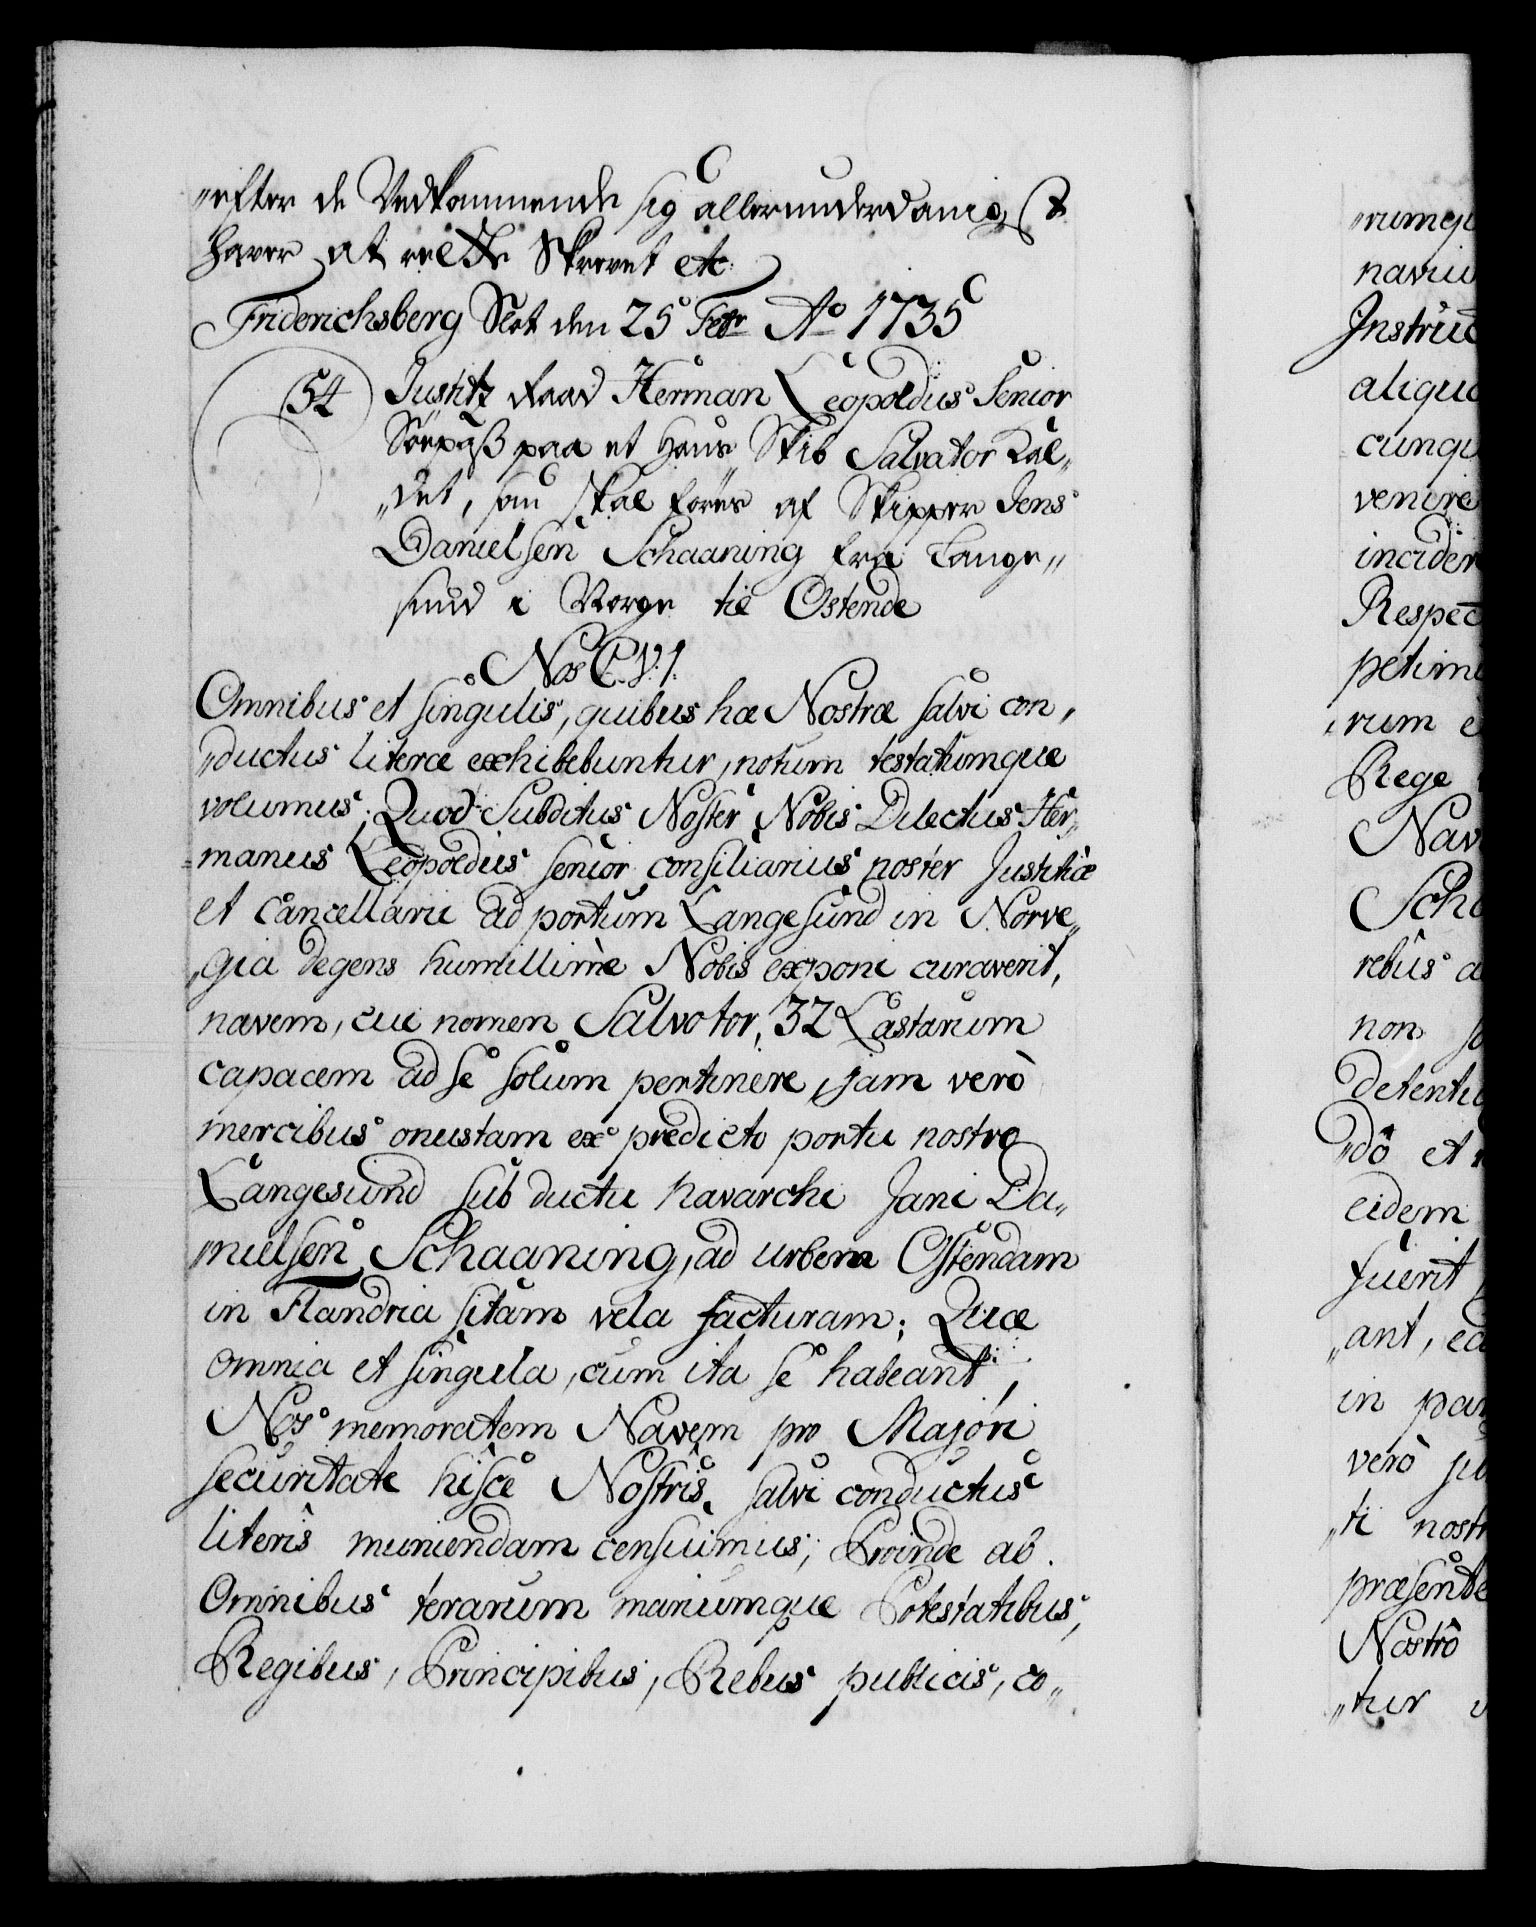 „efter de Vedkommende sig allerunderdanigst
haver at rette Skrevet etc.
Friderichsberg Slot den 25 Febr Ao 1735
54 Justitz Raad Herman Leopoldus Senior
Söepass paa et hans Skib Salvator Kal„
„det, som skal føres af Skipper Jens
Danielsen Schaaning fra Lange„
sund i Norge til Ostende
Nos C. VI.
Omnibus et singulis, quibus hæ Nostræ salvi con„
„ductus literæ exhibebuntur, notum testatumque
volumus; Quod Subditus Noster Nobis Dilectus Her„
„manus Leopoldus senior consiliarius noster Justitiæ
et Cancellarii ad portum Langesund in Norve„
„gia degens humillimè Nobis exponi curaverit,
navem, cui nomen Salvotor, 32 Lastarum
capacem ad se solum pertinere, jam verò
mercibus onustam ex predicto portu nostro
Langesund sub ductu navarchi Jani Da„
„nielsen Schaaning, ad urbem Ostendam
in Flandria sitam vela facturam; Quæ
omnia et singula, cum ita se habeant,
Nos memoratem Navem pro Majori
securitate hisce Nostris salvi conductus
literis muniendam censuimus; Proinde ab
Omnibus terarum mariumque Potestatibus,
Regibus, Principibus, Rebus publicis, co„
„rumqu
naviu
Instruc
aliquo
cunqu
venire
incider
Respec
petimu
„rum e
Rege
Nav
Scha
rebus a
non
detentu
„dô et
eidem
fuerit
„ant, ea
in par
verò
„ti nostr
præsente
Nostrô
„tur